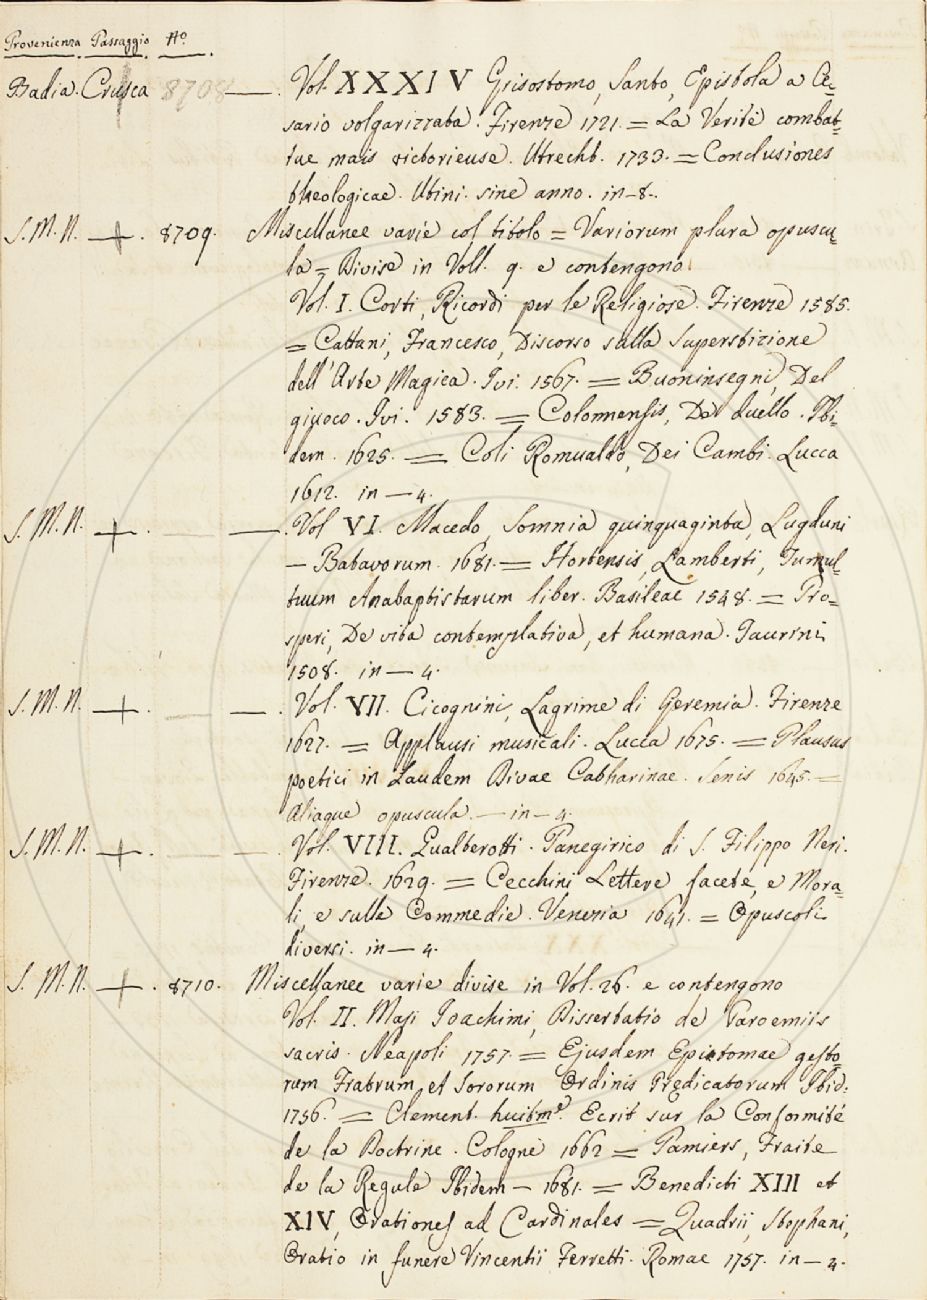 Provenienza Passaggio N.o
Badia. Crusca 8708 — . Vol. XXXIV Grisostomo, Santo, Epistola a Ce=
sario volgarizzata. Firenze 1721. = La Verité combat=
tue mais victorieuse. Utrecht. 1733. = Conclusiones
theologicae. Utini. sine anno. in-8.
S. M. N. — + . 8709. Miscellanee varie col titolo = Variorum plura opuscu=
la = Divise in Voll. 9. e contengono
Vol. I. Corti, Ricordi per le Religiose. Firenze 1585.
= Cattani, Francesco, Discorso sulla Superstizione
dell'Arte Magica. Ivi. 1567. = Buoninsegni, Del
giuoco. Ivi. 1583. = Colomnensis, De duello. Ibi=
dem. 1625. = Coli Romualdo, Dei Cambi. Lucca
1612. in — 4.
S. M. N. + . — . Vol VI. Macedo, Somnia quinquaginta, Lugduni
— Batavorum. 1681. = Hortensis, Lamberti, Tumul=
tuum Anabaptistarum liber. Basileae 1548. = Pro=
speri, De vita contemplativa, et humana. Taurini
1508. in — 4.
S. M. N. + . — . Vol. VII. Cicognini, Lagrime di Geremia. Firenze
1627. = Applausi musicali. Lucca 1675. = Plausus
poetici in Laudem Divae Catharinae. Senis 1645. =
Aliaque opuscula. — in — 4.
S. M. N. + . — Vol. VIII. Gualberotti. Panegirico di S. Filippo Neri.
Firenze. 1629. = Cecchini Lettere facete, e Mora=
li, e sulle Commedie. Venezia 1641. = Opuscoli
diversi. in — 4.
S. M. N. + . 8710. Miscellanee varie divise in Vol. 26. e contengono
Vol. II. Masi Joachimi, Dissertatio de Paroemiis
sacris. Neapoli 1757. = Ejusdem Epistomae gesto
rum Fratrum et Sororum Ordinis Predicatorum Ibid.
1756. = Clement. huitme. Ecrit sur la Conformité
de la Doctrine. Cologne 1662 = Pamiers, Traite
de la Regale Ibidem — 1681. = Benedicti XIII et
XIV, Orationes ad Cardinales = Quadrii, Stophani,
Oratio in funere Vincentii Ferretti. Romae 1757. in — 4.